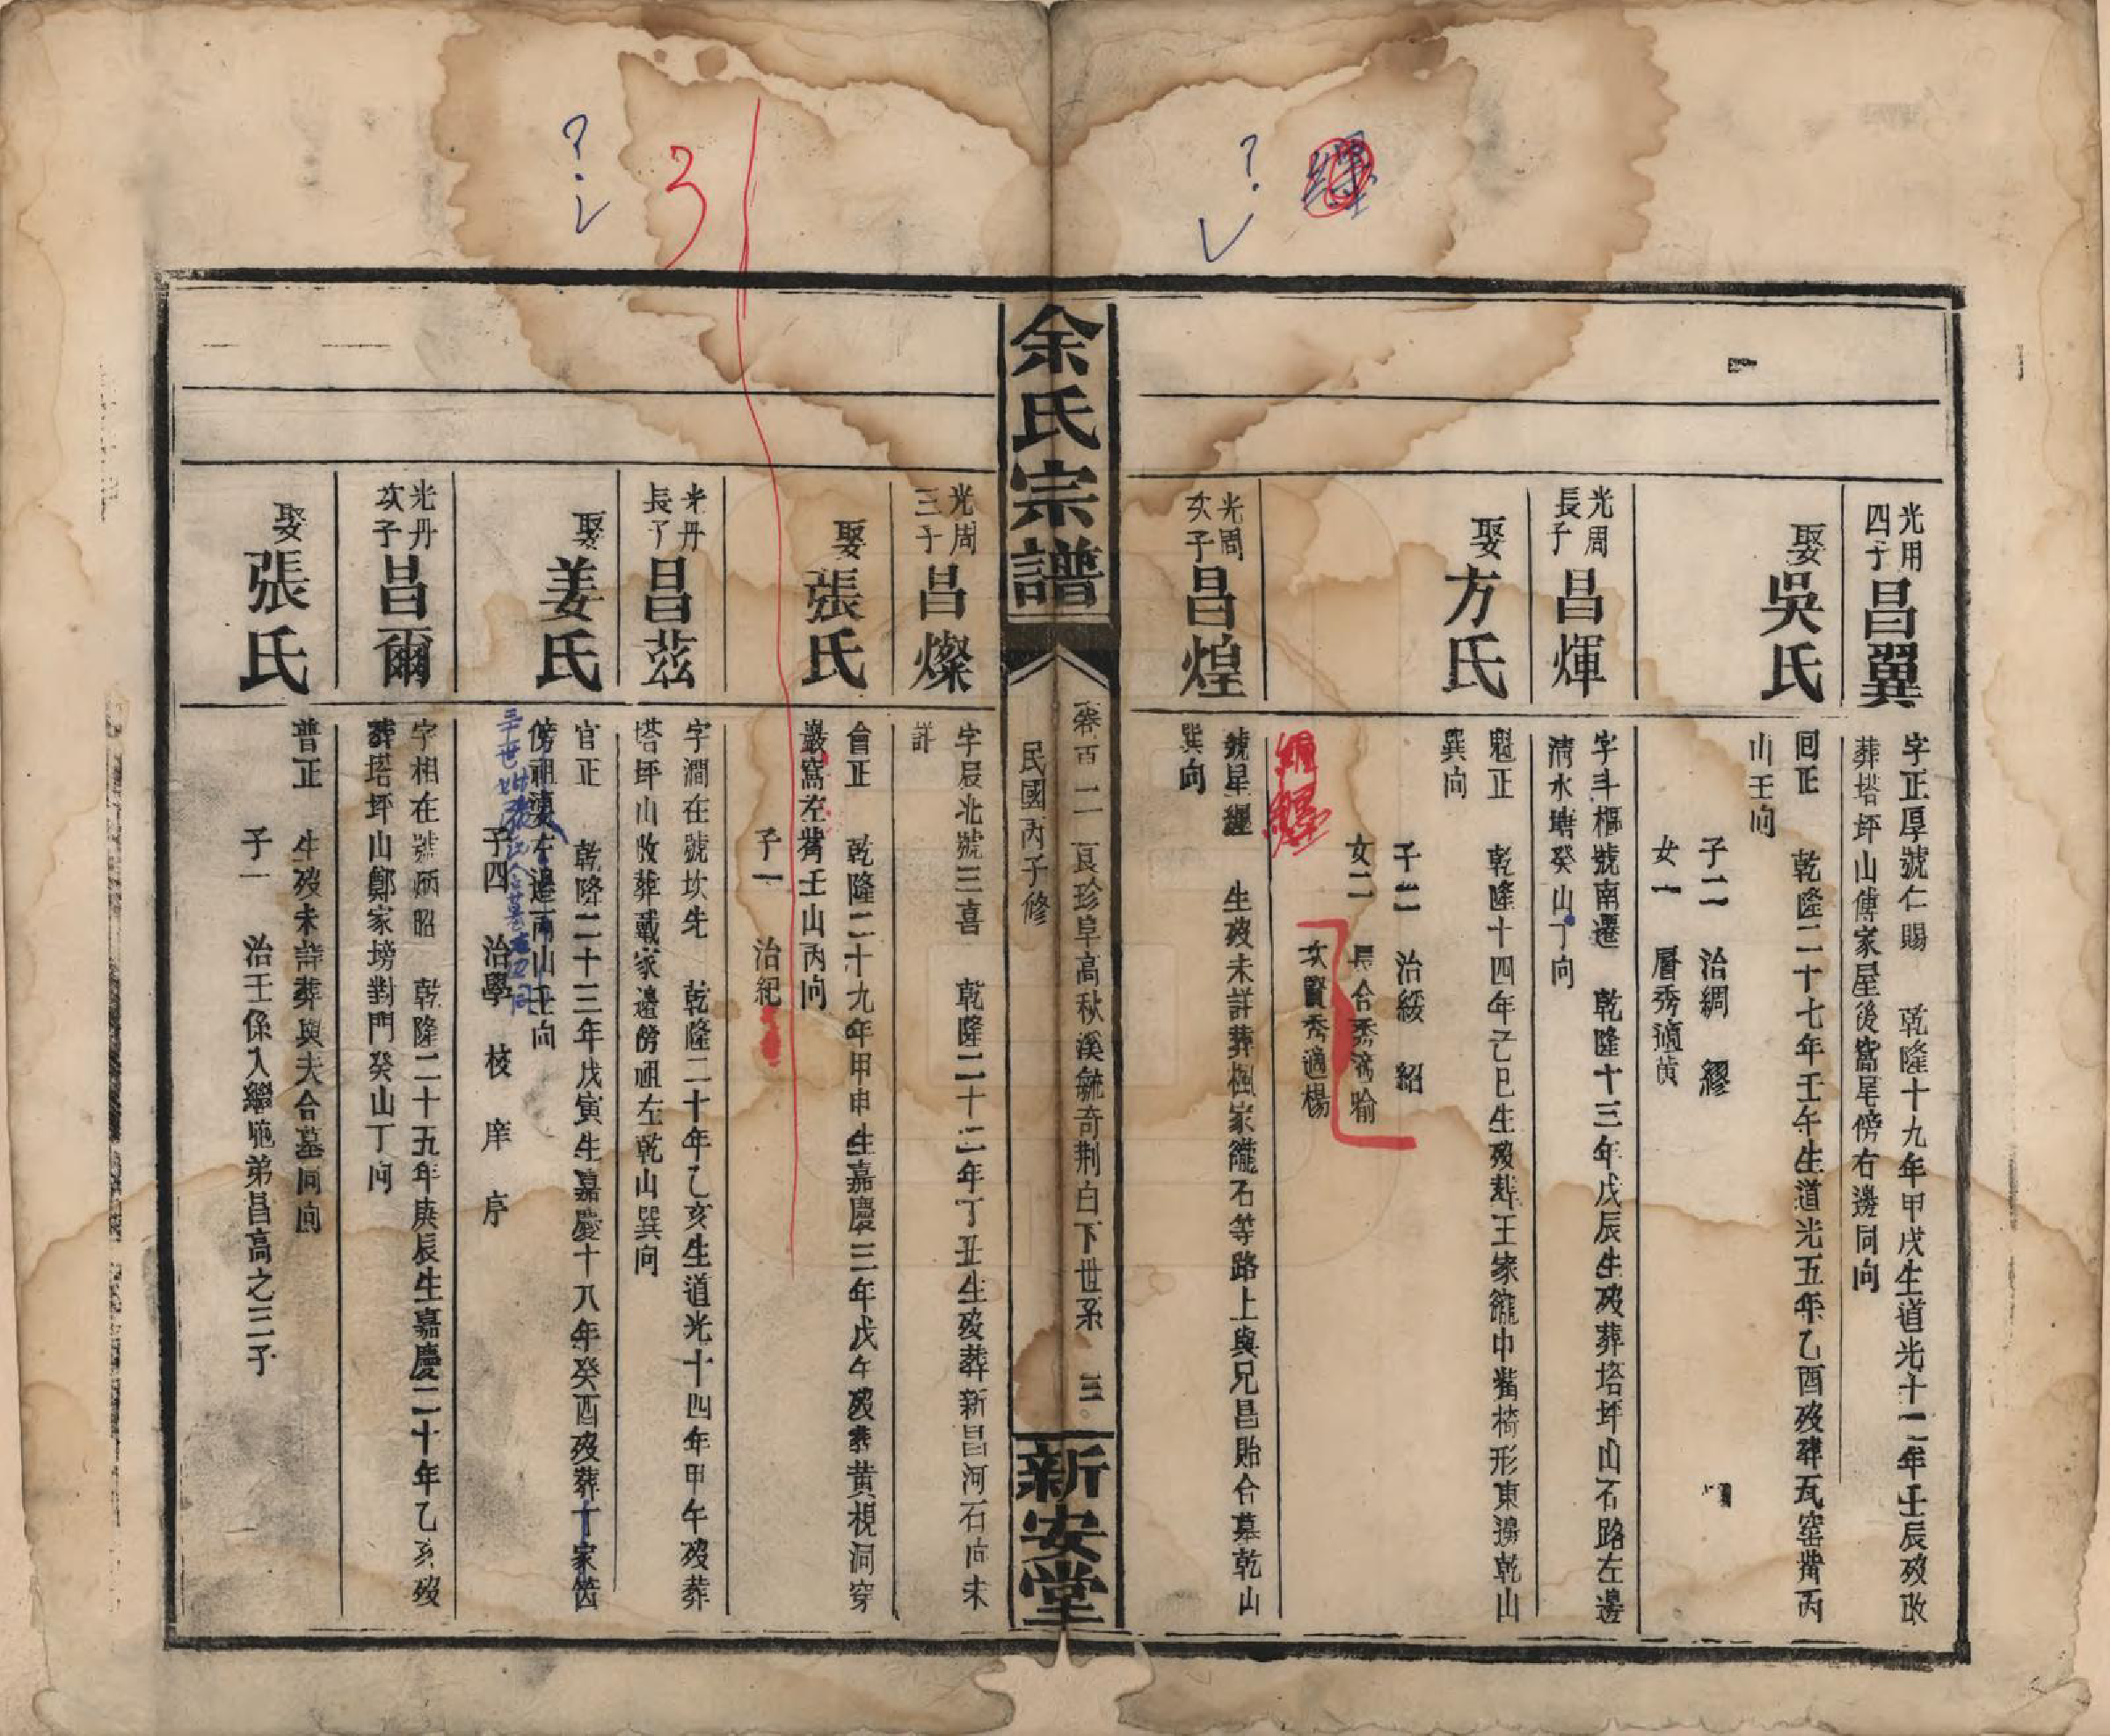 光用
四子
昌翼
字正厚號仁賜 乾隆十九年甲戌生道光十二年壬辰歿改
葬塔坪山傅家屋後窩星傍右邊同向
娶吳氏
回正 乾隆二十七年壬午生道光五年乙酉歿葬瓦窑嘴丙
山壬向
子二 治綢 繆
女一 層秀適黃
光周
長子
昌煇
字斗樞號南遷 乾隆十三年戊辰生歿葬塔坪山石路左邊
清水塘癸山丁向
娶方氏
魁正 乾隆十四年己巳生歿葬王家嚨中嘴椅形東邊乾山
巽向
子二 治綏 紹
女二 長合秀適喻
次賢秀適楊
光周
次子
昌煌
號星纒 生歿未詳葬楓家嚨石等路上與兄昌貽合墓乾山
巽向
余氏宗譜
卷百二 良珍阜高秋溪毓奇荆白下世系 三
民國丙子修
新安堂
光周
三子
昌燦
字辰北號三喜 乾隆二十二年丁丑生歿葬新昌河石向未
詳
娶張氏
會正 乾隆二十九年甲申生嘉慶三年戊午歿葬黄梘洞穿
巖窩左嘴壬山丙向
子一 治紀
光丹
長子
昌茲
字澗在號坎先 乾隆二十年乙亥生道光十四年甲午歿葬
塔坪山改葬戴家邊傍祖左乾山巽向
娶姜氏
官正 乾隆二十三年戊寅生嘉慶十八年癸酉歿葬十家
傍祖瀆左邊丙山壬向
子四 治學 校 庠 序
光丹
次子
昌爾
字相在號炳昭 乾隆二十五年庚辰生嘉慶二十年乙亥歿
葬塔坪山鄭家塝對門癸山丁向
娶張氏
普正 生歿未詳葬與夫合墓同向
子一 治王係入繼胞弟昌高之三子